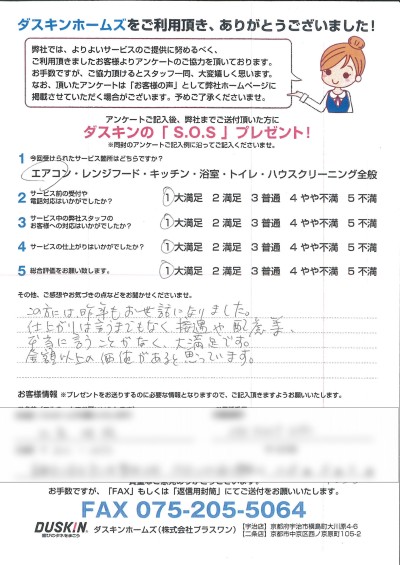 ダスキンホームズをご利用頂き、ありがとうございました！
弊社では、よりよいサービスのご提供に努めるべく、
ご利用頂きましたお客様よりアンケートのご協力を頂いております。
お手数ですが、ご協力頂けるとスタッフ一同、大変嬉しく思います。
なお、頂いたアンケートは「お客様の声」として弊社ホームページに
掲載させていただく場合がございます。予めご了承くださいませ。
アンケートご記入後、弊社までご送付頂いた方に
ダスキンの「S.O.S」プレゼント！
※同封のアンケートご記入例に沿ってご記入くださいませ。
1 今回受けられたサービス箇所はどちらですか？
エアコン・レンジフード・キッチン・浴室・トイレ・ハウスクリーニング全般
2 サービス前の受付や
電話対応はいかがでしたか？ 1 大満足 2 満足 3 普通 4 やや不満 5 不満
3 サービス中の弊社スタッフの
お客様への対応はいかがでしたか？ 1 大満足 2 満足 3 普通 4 やや不満 5 不満
4 サービスの仕上がりはいかがでしたか？ 1 大満足 2 満足 3 普通 4 やや不満 5 不満
5 総合評価をお願い致します。 1 大満足 2 満足 3 普通 4 やや不満 5 不満
その他、ご感想やお気づきの点などをお聞かせくださいませ。
この方には昨年もお世話になりました。
仕上がりは言うまでもなく、接遇や配慮等、
本当に言うことがなく、大満足です。
金額以上の価値があると思っています。
お客様情報 ※プレゼントをお送りするのに必要な情報となりますので、ご記入頂きますようお願いいたします。
お手数ですが、「FAX」もしくは「返信用封筒」にてご送付をお願いいたします。
FAX 075-205-5064
DUSKIN
ダスキンホームズ（株式会社プラスワン）
【宇治店】京都府宇治市槇島町大川原4-6
【二条店】京都市中京区西ノ京原町105-2